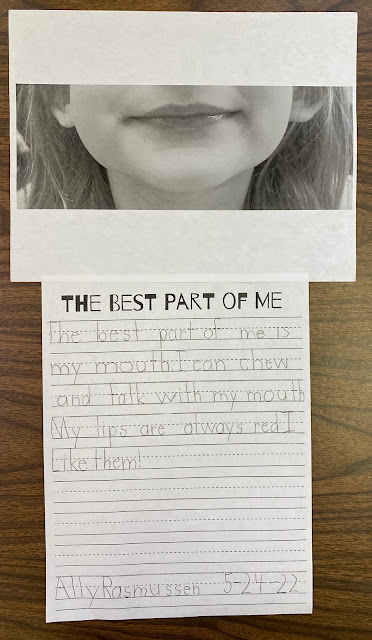 THE BEST PART OF ME
The best part of me is
my mouth. I can chew
and talk with my mouth
My lips are always red I
Like them!
Ally Rasmussen 5-24-22